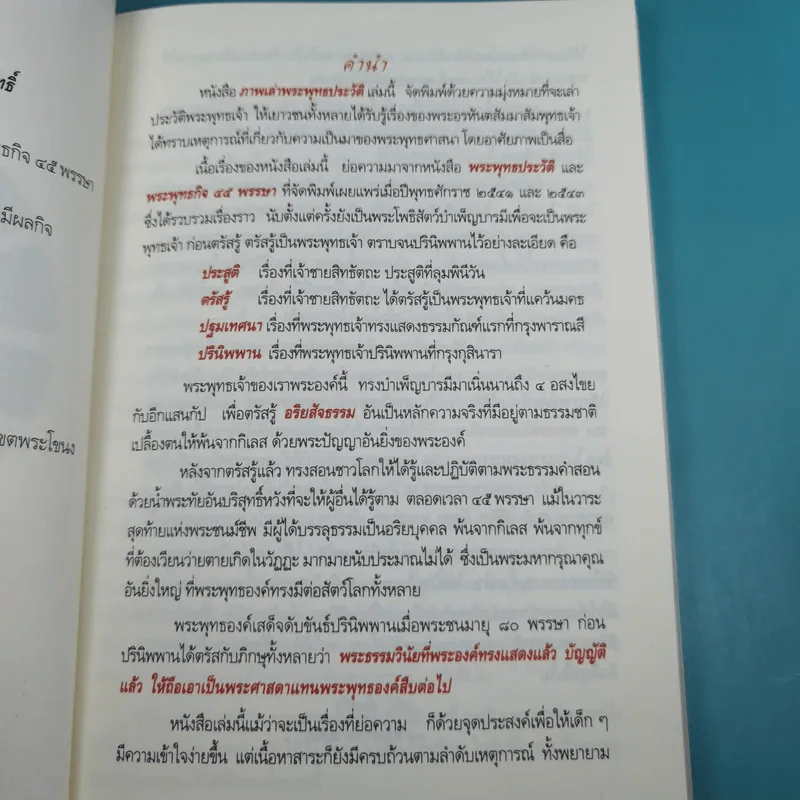 คำนำ
หนังสือ ภาพเล่าพระพุทธประวัติ เล่มนี้ จัดพิมพ์ด้วยความมุ่งหมายที่จะเล่า
ประวัติพระพุทธเจ้า ให้เยาวชนทั้งหลายได้รับรู้เรื่องของพระอรหันตสัมมาสัมพุทธเจ้า
ได้ทราบเหตุการณ์ที่เกี่ยวกับความเป็นมาของพระพุทธศาสนา โดยอาศัยภาพเป็นสื่อ
เนื้อเรื่องของหนังสือเล่มนี้ ย่อความมาจากหนังสือ พระพุทธประวัติ และ
พระพุทธกิจ ๔๕ พรรษา ที่จัดพิมพ์เผยแพร่เมื่อปีพุทธศักราช ๒๕๔๑ และ ๒๕๔๓
ซึ่งได้รวบรวมเรื่องราว นับตั้งแต่ครั้งยังเป็นพระโพธิสัตว์บำเพ็ญบารมีเพื่อจะเป็นพระ
พุทธเจ้า ก่อนตรัสรู้ ตรัสรู้เป็นพระพุทธเจ้า ตราบจนปรินิพพานไว้อย่างละเอียด คือ
ประสูติ เรื่องที่เจ้าชายสิทธัตถะ ประสูติที่ลุมพินีวัน
ตรัสรู้ เรื่องที่เจ้าชายสิทธัตถะ ได้ตรัสรู้เป็นพระพุทธเจ้าที่แคว้นมคธ
ปฐมเทศนา เรื่องที่พระพุทธเจ้าทรงแสดงธรรมกัณฑ์แรกที่กรุงพาราณสี
ปรินิพพาน เรื่องที่พระพุทธเจ้าปรินิพพานที่กรุงกุสินารา
พระพุทธเจ้าของเราพระองค์นี้ ทรงบำเพ็ญบารมีมาเนิ่นนานถึง ๔ อสงไขย
กับอีกแสนกัป เพื่อตรัสรู้ อริยสัจธรรม อันเป็นหลักความจริงที่มีอยู่ตามธรรมชาติ
เปลื้องตนให้พ้นจากกิเลส ด้วยพระปัญญาอันยิ่งของพระองค์
หลังจากตรัสรู้แล้ว ทรงสอนชาวโลกให้ได้รู้และปฏิบัติตามพระธรรมคำสอน
ด้วยน้ำพระทัยอันบริสุทธิ์หวังที่จะให้ผู้อื่นได้รู้ตาม ตลอดเวลา ๔๕ พรรษา แม้ในวาระ
สุดท้ายแห่งพระชนม์ชีพ มีผู้ได้บรรลุธรรมเป็นอริยบุคคล พ้นจากกิเลส พ้นจากทุกข์
ที่ต้องเวียนว่ายตายเกิดในวัฏฏะ มากมายนับประมาณไม่ได้ ซึ่งเป็นพระมหากรุณาคุณ
อันยิ่งใหญ่ ที่พระพุทธองค์ทรงมีต่อสัตว์โลกทั้งหลาย
พระพุทธองค์เสด็จดับขันธ์ปรินิพพานเมื่อพระชนมายุ ๘๐ พรรษา ก่อน
ปรินิพพานได้ตรัสกับภิกษุทั้งหลายว่า พระธรรมวินัยที่พระองค์ทรงแสดงแล้ว บัญญัติ
แล้ว ให้ถือเอาเป็นพระศาสดาแทนพระพุทธองค์สืบต่อไป
หนังสือเล่มนี้แม้ว่าจะเป็นเรื่องที่ย่อความ ก็ด้วยจุดประสงค์เพื่อให้เด็ก ๆ
มีความเข้าใจง่ายขึ้น แต่เนื้อหาสาระก็ยังมีครบถ้วนตามลำดับเหตุการณ์ ทั้งพยายาม
๔๕ พรรษา
มีผลกิจ
พระโขนง